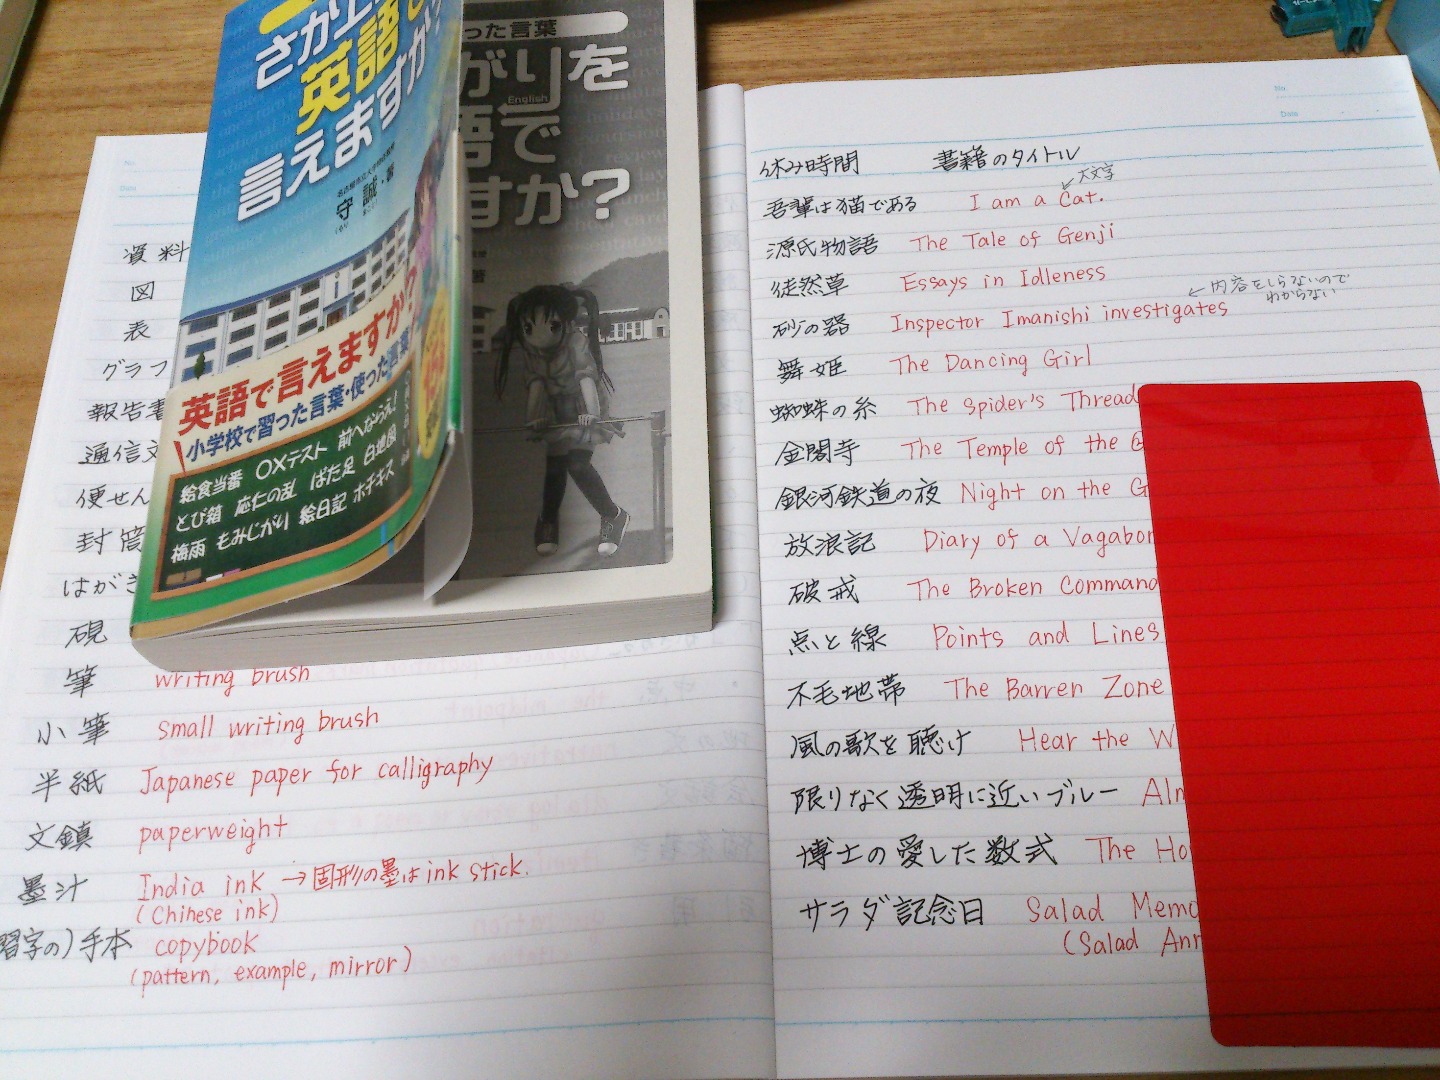 さか上
英語で
言えますか?
守 誠・著
英語で言えますか?
小学校で習った言葉・使った言葉
給食当番 ○×テスト 前へならえ!
とび箱 応仁の乱 ばた足 白地図
梅雨 もみじがり 絵日記 ホチキス
った言葉
がりを
English
語で
すか?
著
No.
Date
資料
図
表
グラフ
報告書
通信文
便せん
封筒
はがき
硯
筆 writing brush
小筆 small writing brush
半紙 Japanese paper for calligraphy
文鎮 paperweight
墨汁 India ink → 固形の墨はink stick.
(Chinese ink)
習字の)手本 copybook
(pattern, example, mirror)
No.
Date
休み時間 書籍のタイトル
大文字
吾輩は猫である I am a Cat.
源氏物語 The Tale of Genji
徒然草 Essays in Idleness
← 内容をしらないので
わからない
砂の器 Inspector Imanishi investigates
舞姫 The Dancing Girl
蜘蛛の糸 The Spider's Thread
金閣寺 The Temple of the G
銀河鉄道の夜 Night on the G
放浪記 Diary of a Vagabon
破戒 The Broken Command
点と線 Points and Lines
不毛地帯 The Barren Zone
風の歌を聴け Hear the W
限りなく透明に近いブルー Alm
博士の愛した数式 The Ho
サラダ記念日 Salad Memo
(Salad Ann